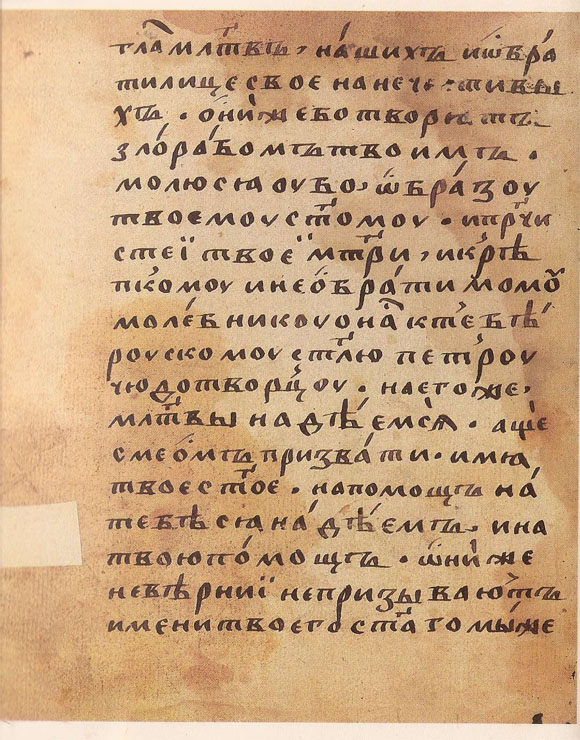 гла млтвъ, нашихъ иѡбра
тилище своe на нечестивы
хъ. ѡни же бо творѧтъ
зло рабомъ твоимъ.
молюсѧ оубо, ѡбразоу
твоемоу стомоу. и прчи
стеї твоеї мтри, и крѣ
пкомоу и необратимомоу
молебникоу о нас к тебѣ
роускомоу стлю петроу
чюдотворцоу. на егоже,
млтвы надѣемсѧ. аще
смеѡмъ призвати. имѧ
твое стое. на помощъ на
тебѣ сѧ надѣемъ. и на
твою помощъ. ѡни же
невѣрниї не призываютъ
имени твоего стаго мы же